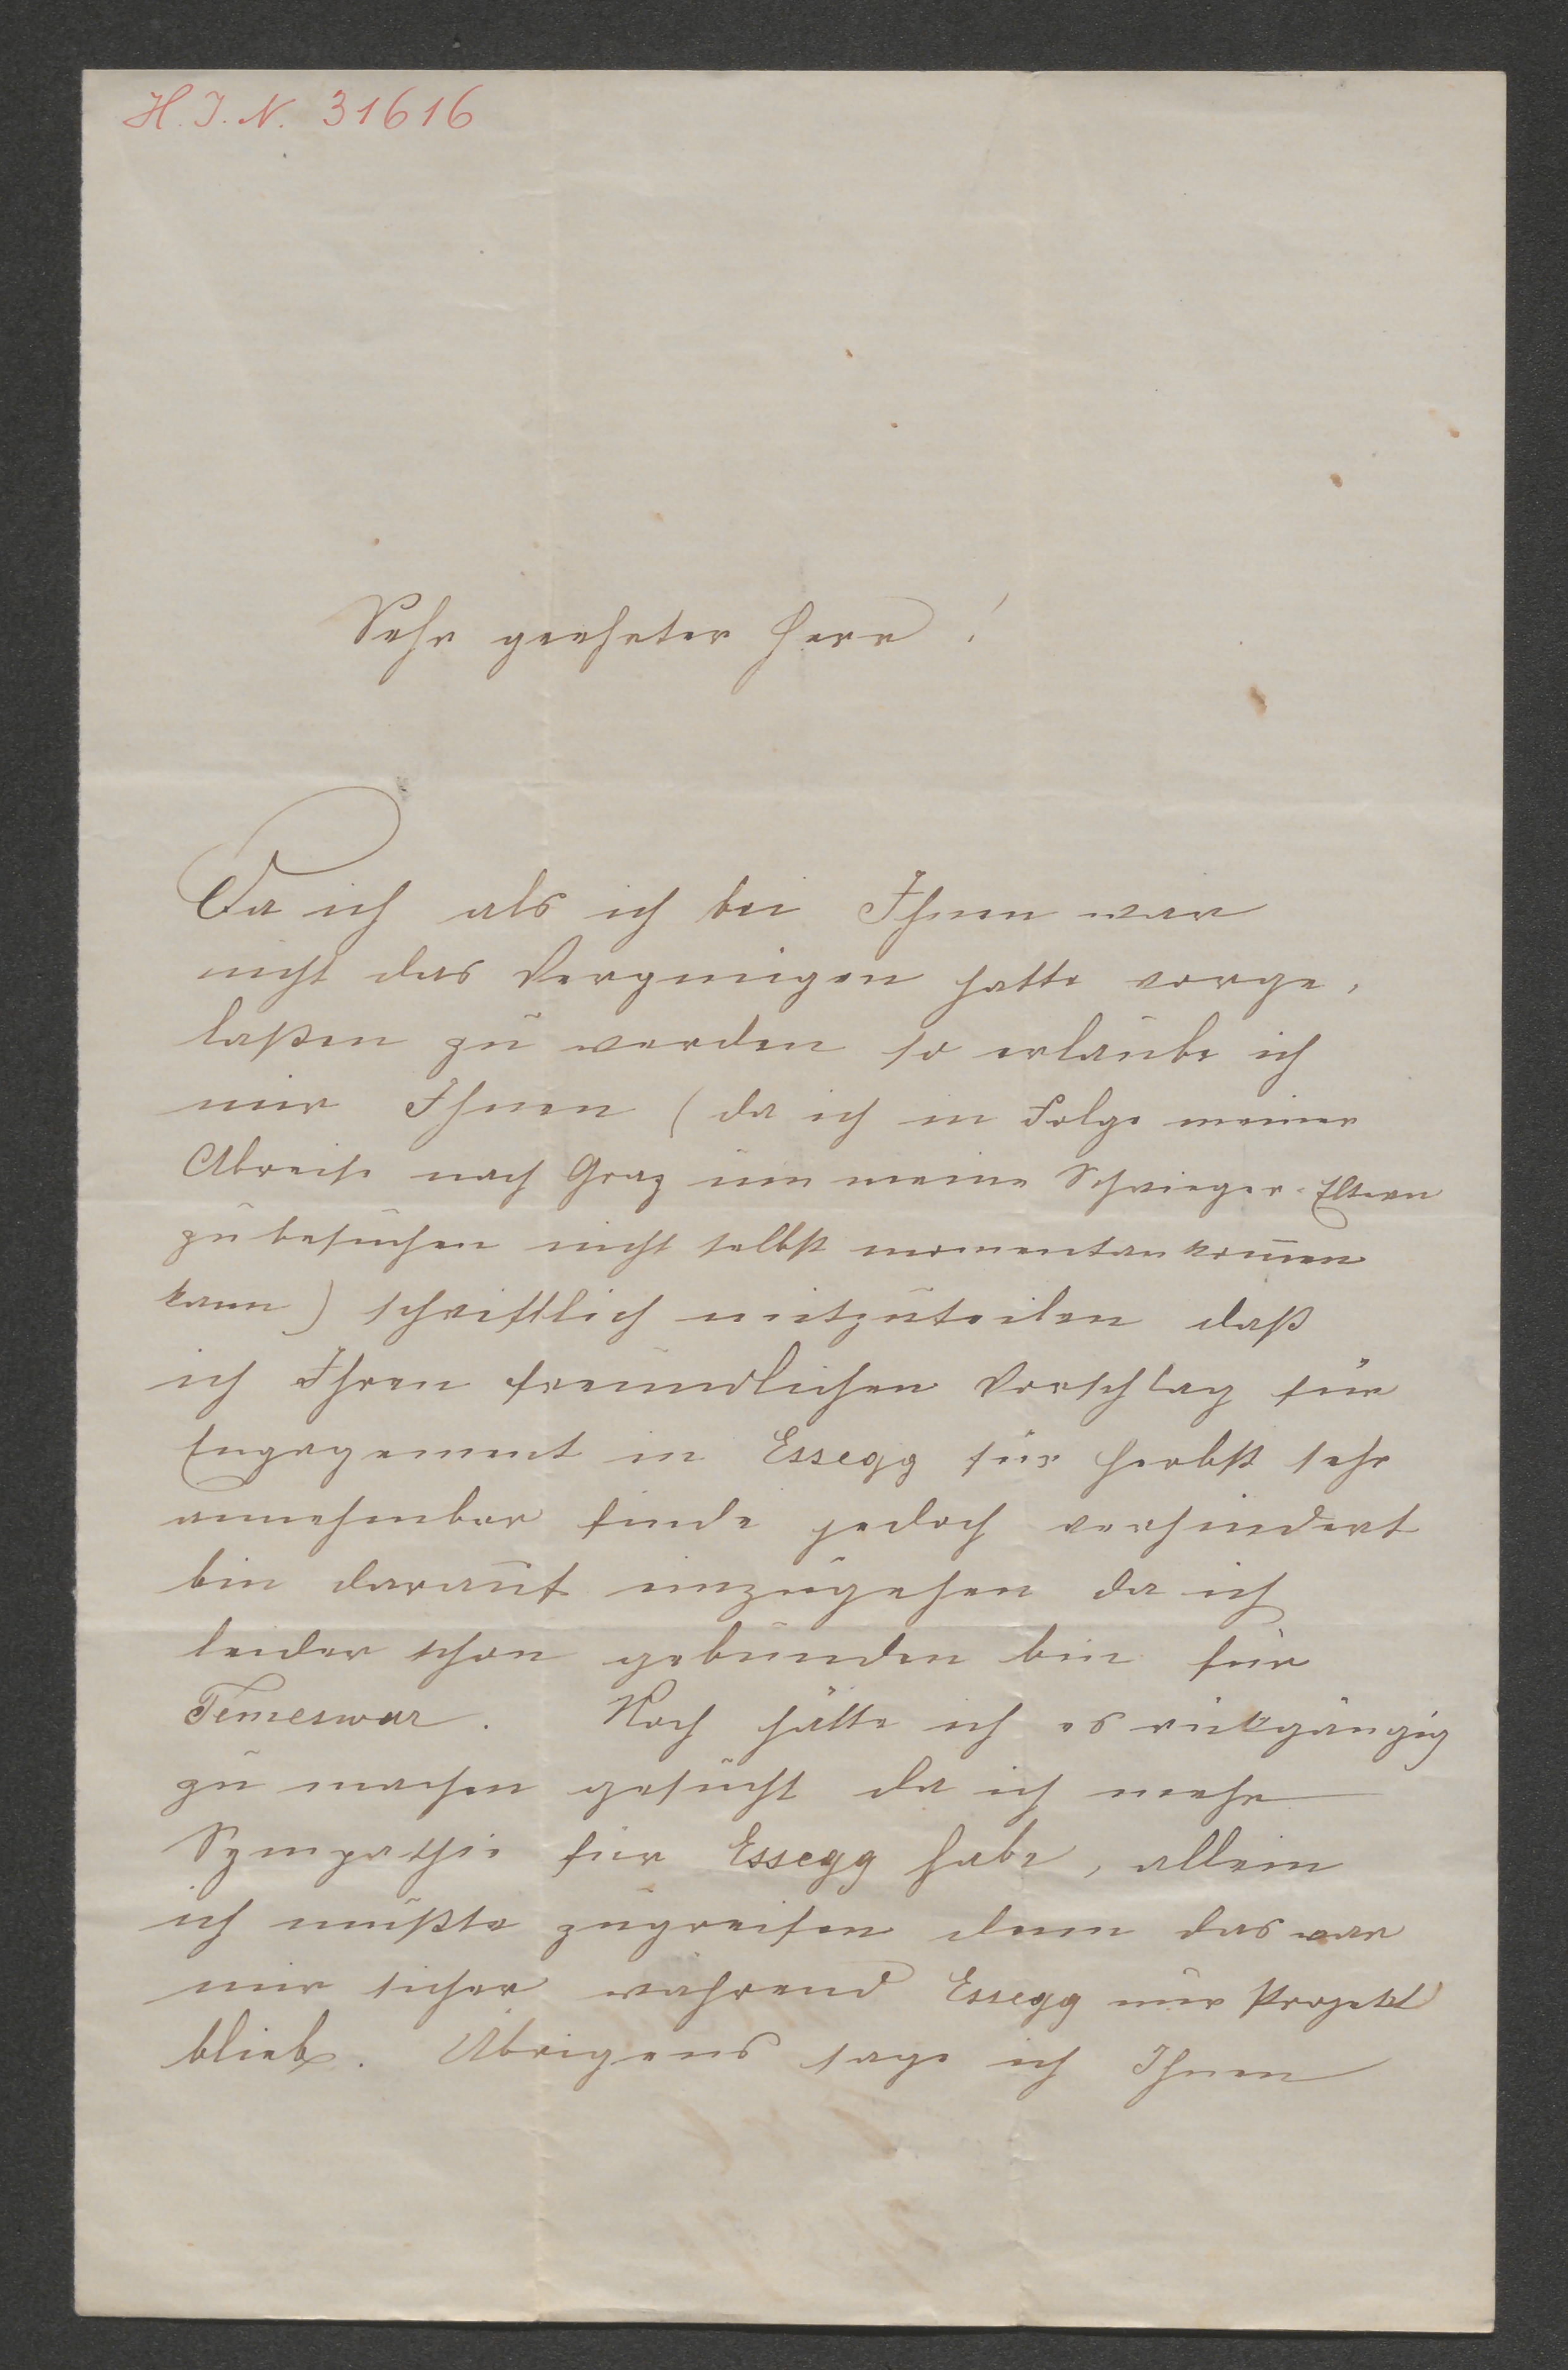 H. I. N. 31616
Sehr geehrter Herr!
Da ich als ich bei Ihnen war
nicht das Vergnügen hatte vorge-
laßen zu werden so erlaube ich
mir Ihnen (da ich in Folge meiner
Abreise nach Graz um meine Schwieger-Eltern
zu besuchen nicht selbst momentan komen
kann) schriftlich mitzuteilen daß
ich Ihren freundlichen Vorschlag für
Engagement in Essegg für Herbst sehr
annehmbar finde jedoch verhindert
bin darauf einzugehen da ich
leider schon gebunden bin für
Temeswar. Noch hätte ich es rückgängig
zu machen gesucht da ich mehr
Sympathie für Essegg habe, allein
ich mußte zugreifen denn das war
mir sicher während Essegg nur Projekt
blieb. Übrigens sage ich Ihnen